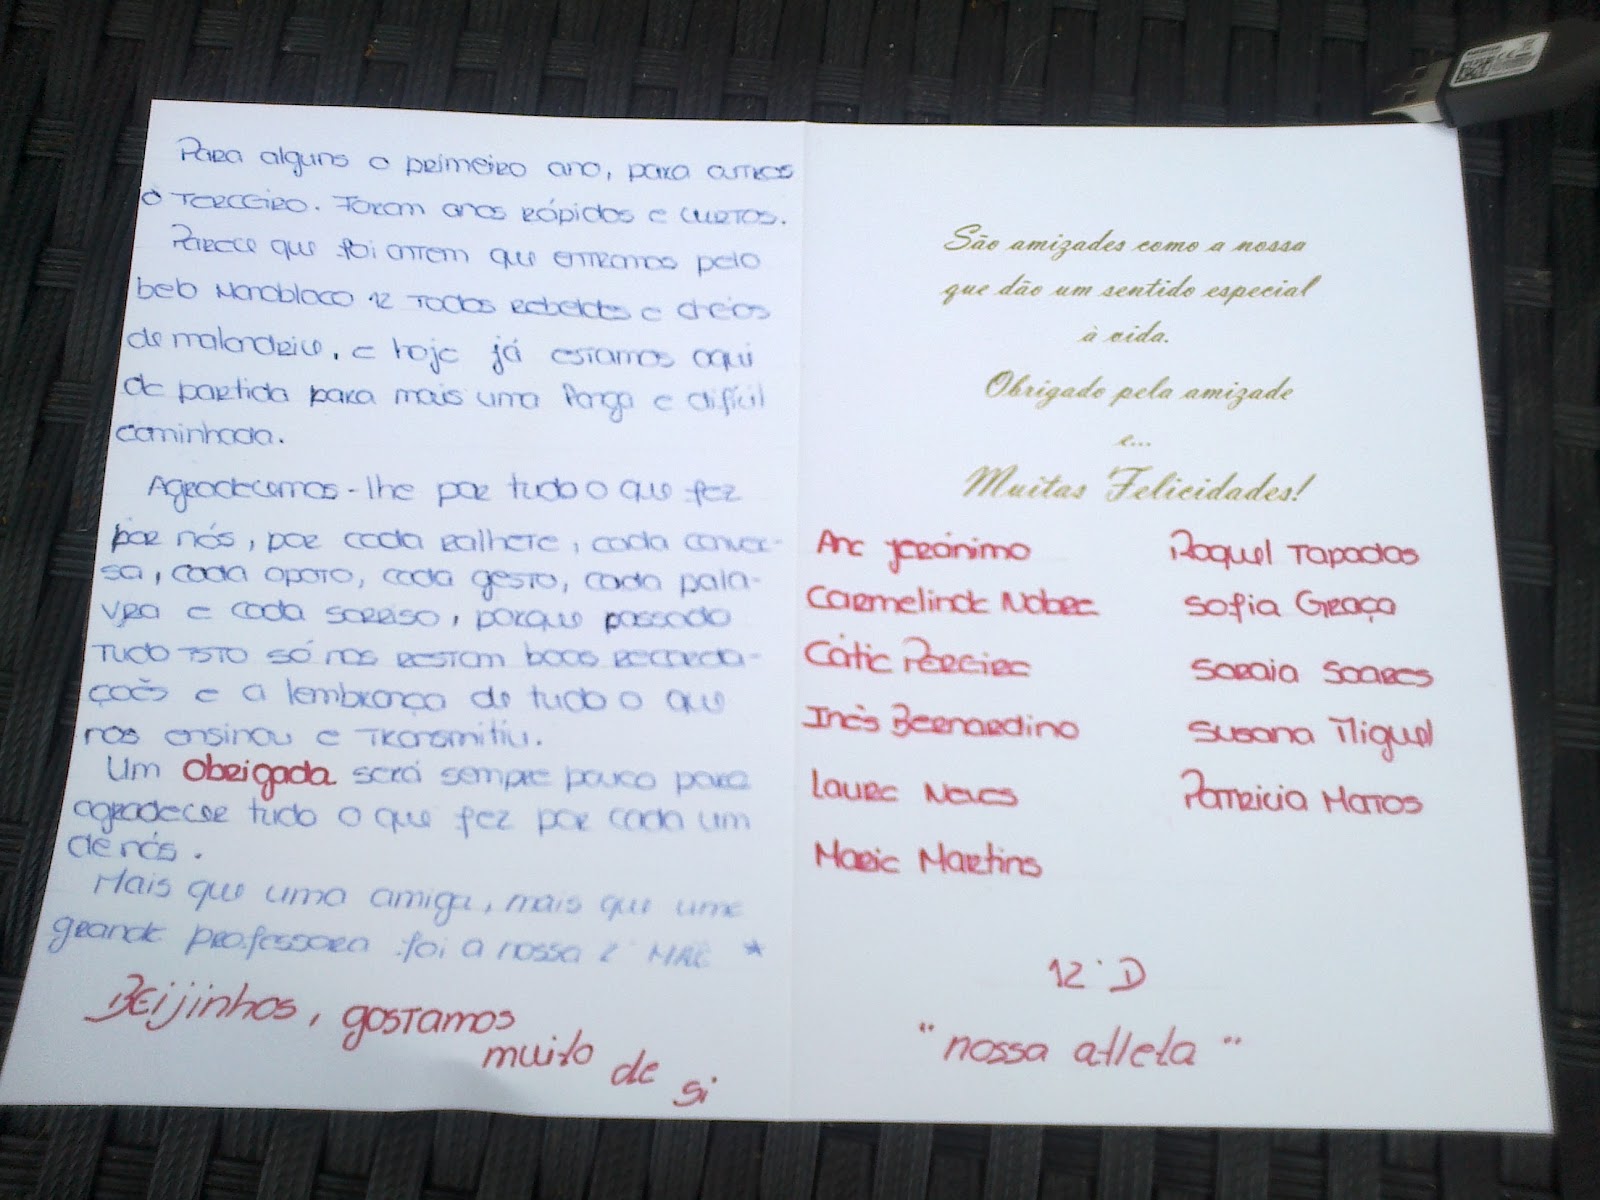 Para alguns o primeiro ano, para outros
o terceiro. Foram anos rápidos e curtos.
Parece que foi ontem que entramos pelo
belo Monobloco 12 todos rebeldes e cheios
de malandrice, e hoje já estamos aqui
de partida para mais uma longa e difícil
caminhada.
Agradecemos-lhe por tudo o que fez
por nós, por cada ralhete, cada conver-
sa, cada apoio, cada gesto, cada pala-
vra e cada sorriso, porque passado
tudo isto só nos restam boas recorda-
ções e a lembrança de tudo o que
nos ensinou e transmitiu.
Um obrigada será sempre pouco para
agradecer tudo o que fez por cada um
de nós.
Mais que uma amiga, mais que uma
grande professora foi a nossa 2ª MÃE *
Beijinhos, gostamos
muito de si
São amizades como a nossa
que dão um sentido especial
à vida.
Obrigado pela amizade
e...
Muitas Felicidades!
Ana Jerónimo
Carmelinda Nobre
Cátia Pereira
Inês Bernardino
Laura Neves
Maria Martins
Raquel Tapadas
Sofia Graça
Soraia Soares
Susana Miguel
Patricia Matos
12ºD
"nossa atleta"